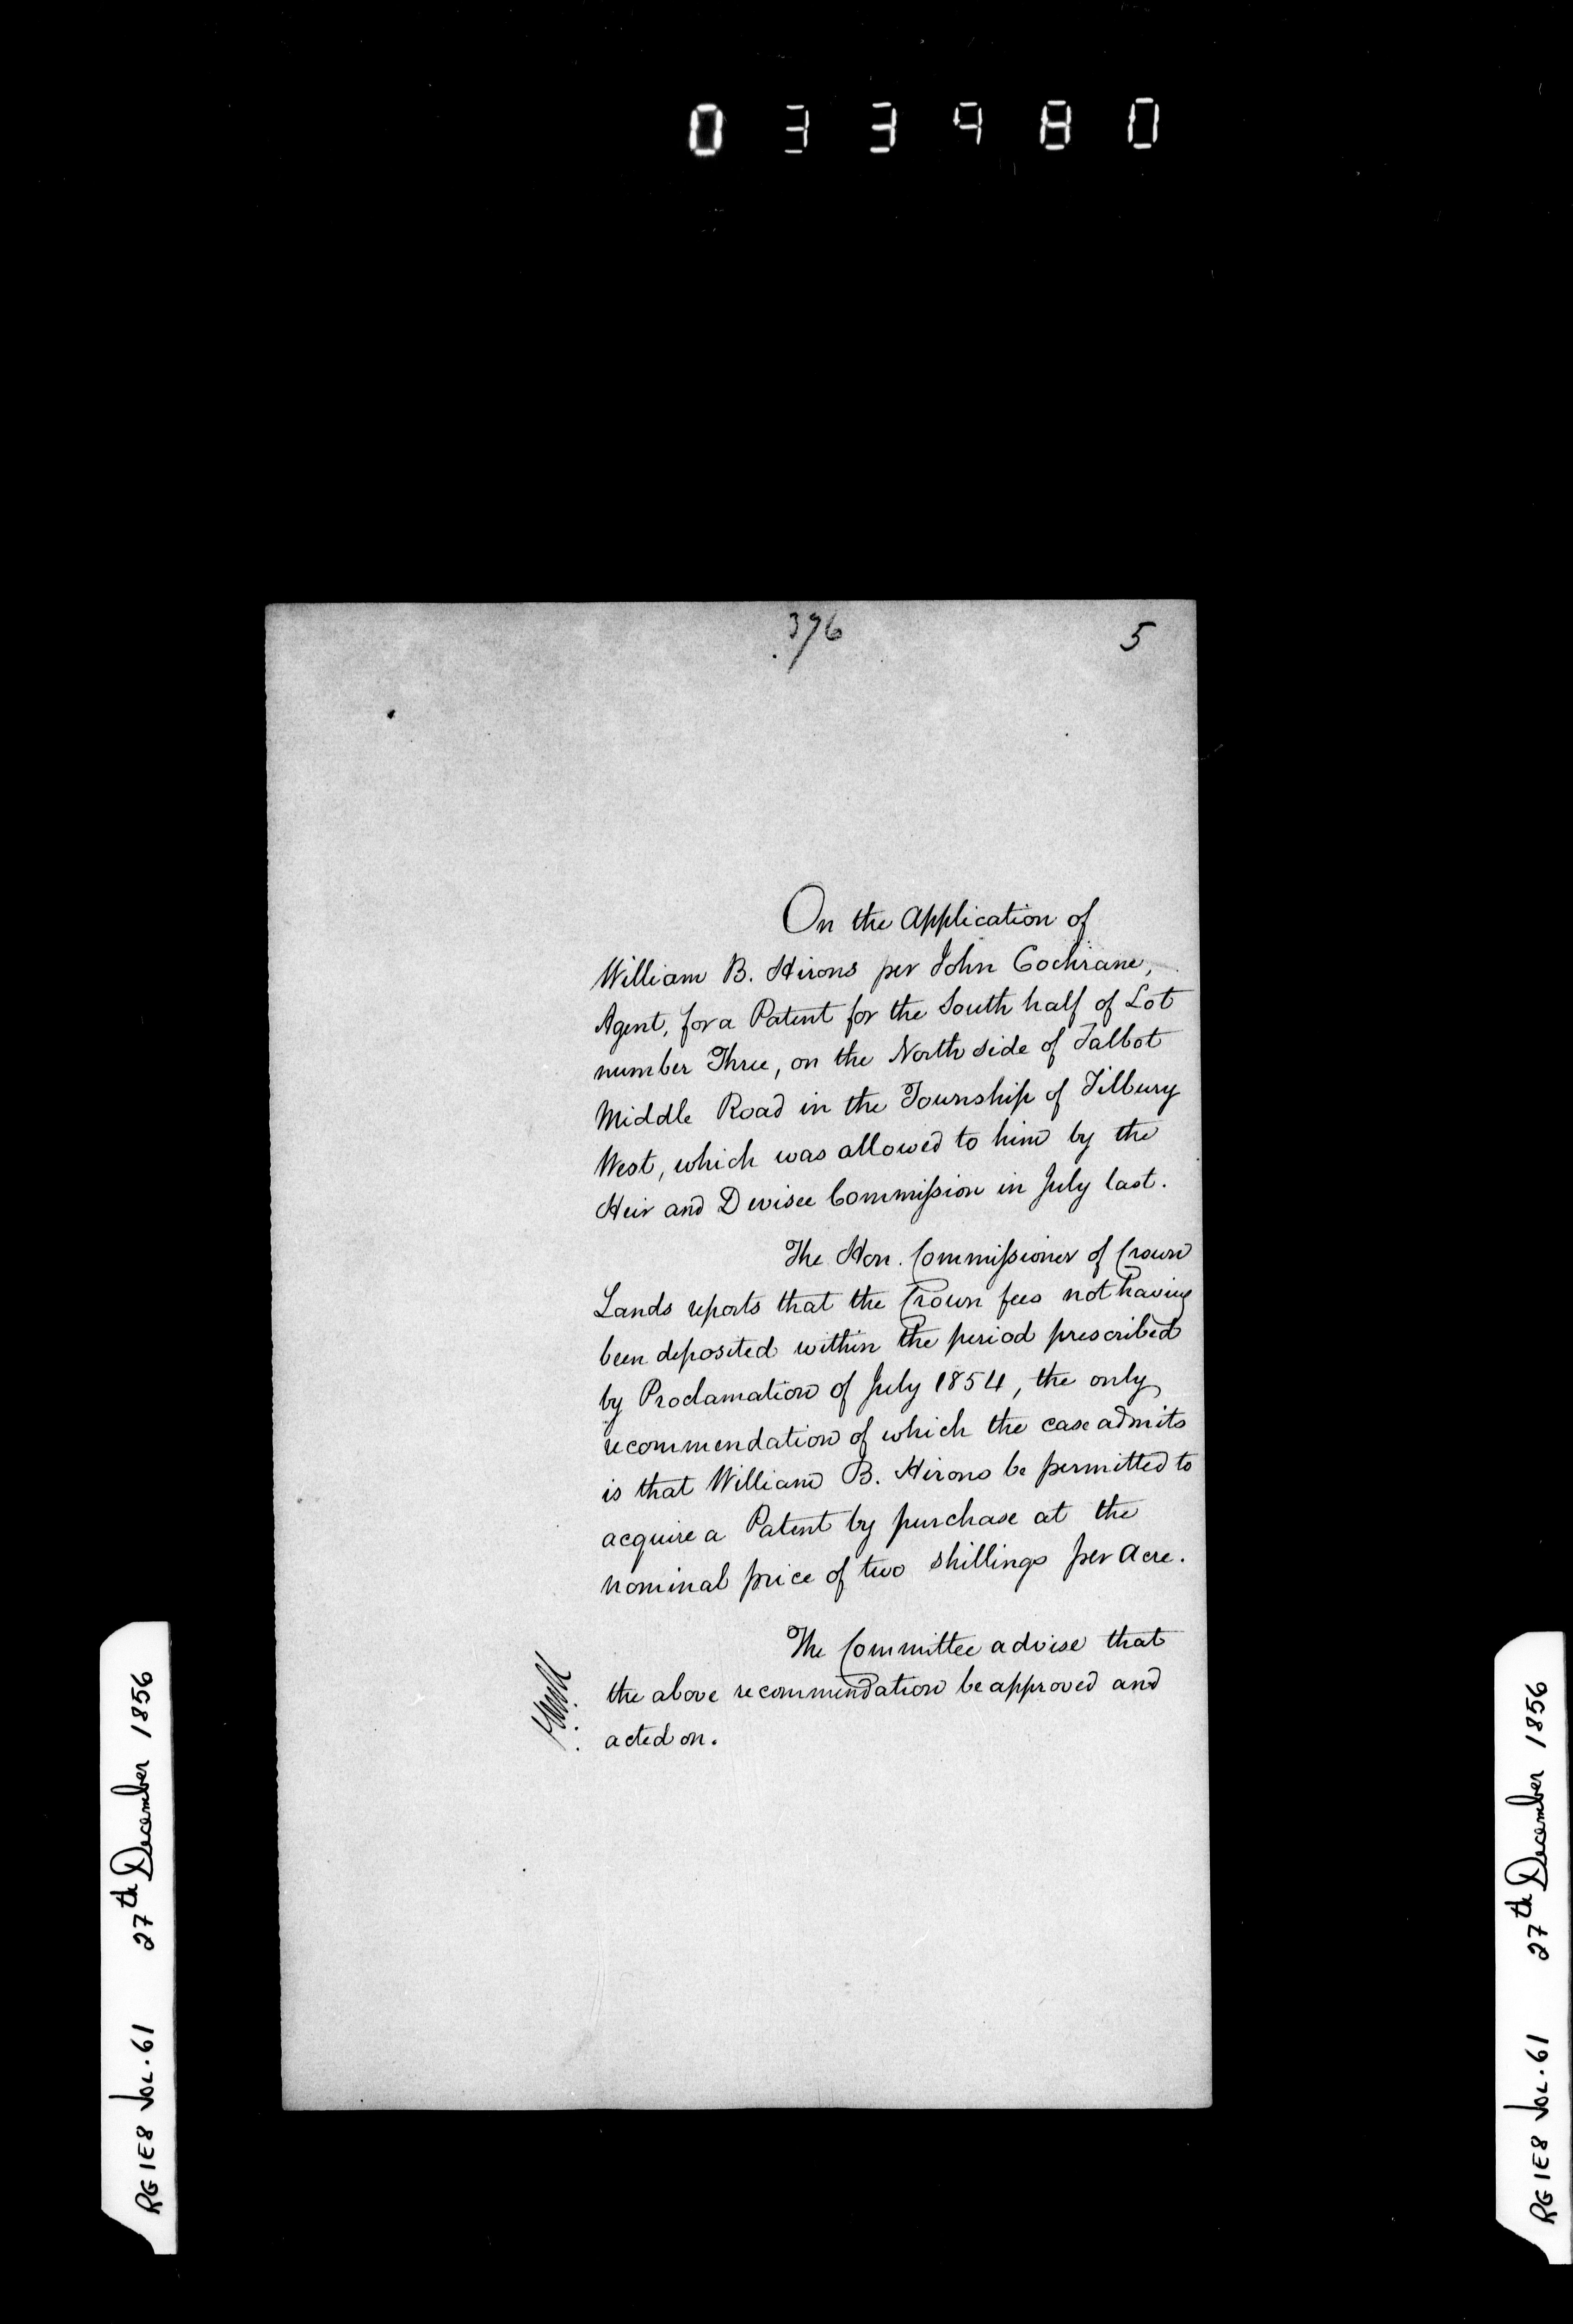 033980
396
5
On the Application of
William B. Hirons per John Cochrane,
Agent, for a Patent for the South half of Lot
number Three, on the North side of Talbot
Middle Road in the Township of Tilbury
West, which was allowed to him by the
Heir and Devisee Commission in July last.
The Hon. Commissioner of Crown
Lands reports that the Crown fees not having
been deposited within the period prescribed
by Proclamation of July 1854, the only
recommendation of which the case admits
is that William B. Hirons be permitted to
acquire a Patent by purchase at the
nominal price of two shillings per Acre.
The Committee advise that
the above recommendation be approved and
acted on.
RG 1E8 VOL. 61 27th December 1856
RG 1E8 VOL. 61 27th December 1856